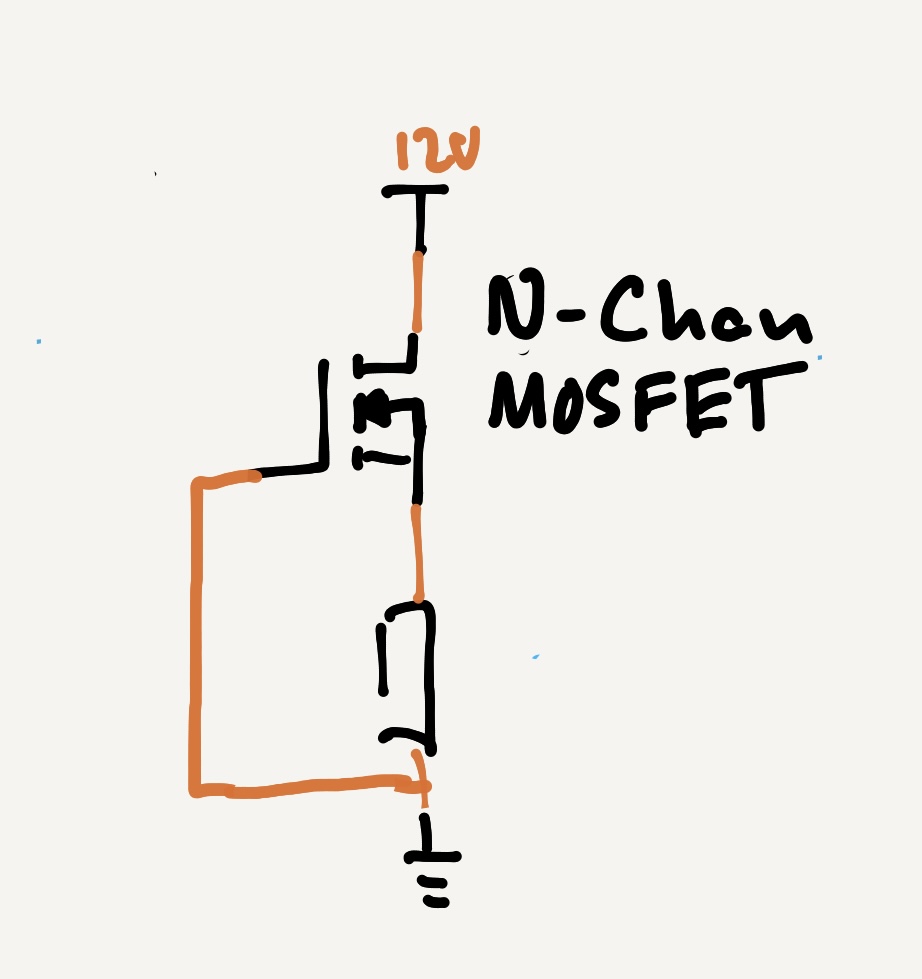 12V
N-Chan
MOSFET